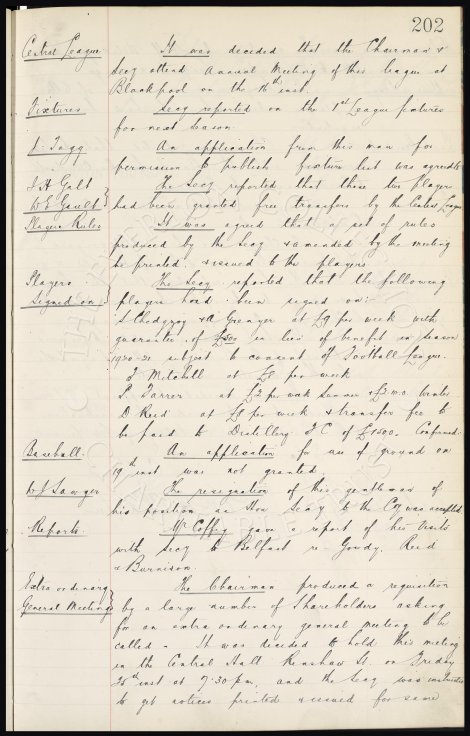 202
Central League It was decided that the Chairman &
Secy attend Annual Meeting of this league at
Blackpool on the inst.
Fixtures Secy reported on the 1st League fixtures
for next season.
J. Tagg An application from this man for
permission to publish fixture list was agreed to
J H Galt The Secy reported that these two players
W E Gault had been granted free transfers by the Central League
Players Rules It was agreed that a set of rules
produced by the Secy & amended by the meeting
be printed & issued to the players
Players The Secy reported that the following
signed on players had been signed on:
S Chedgzoy & A Grenyer at £9 per week with
guarantee of £500 in lieu of benefit in season
1920-21 subject to consent of Football League.
F Mitchell at £8 per week
P. Farrer at per week Summer & Winter
D Reid at £8 per week & transfer fee to
be paid to Distillery F C of £1500. Confirmed.
Baseball. An application for use of ground on
19th inst was not granted.
W J Sawyer The resignation of this gentleman of
his position as Hon Secy to the Coy was accepted
Reports. Mr Coffey gave a report of his visits
with Secy to Belfast re Goudy, Reid
& Burnison.
Extra ordinary The Chairman produced a requisition
General Meeting by a large number of Shareholders asking
for an extra ordinary general meeting to be
called - It was decided to hold this meeting
in the Central Hall Renshaw St. on Friday
25th inst at 7.30 pm, and the Secy was instructed
to get notices printed & issued for same